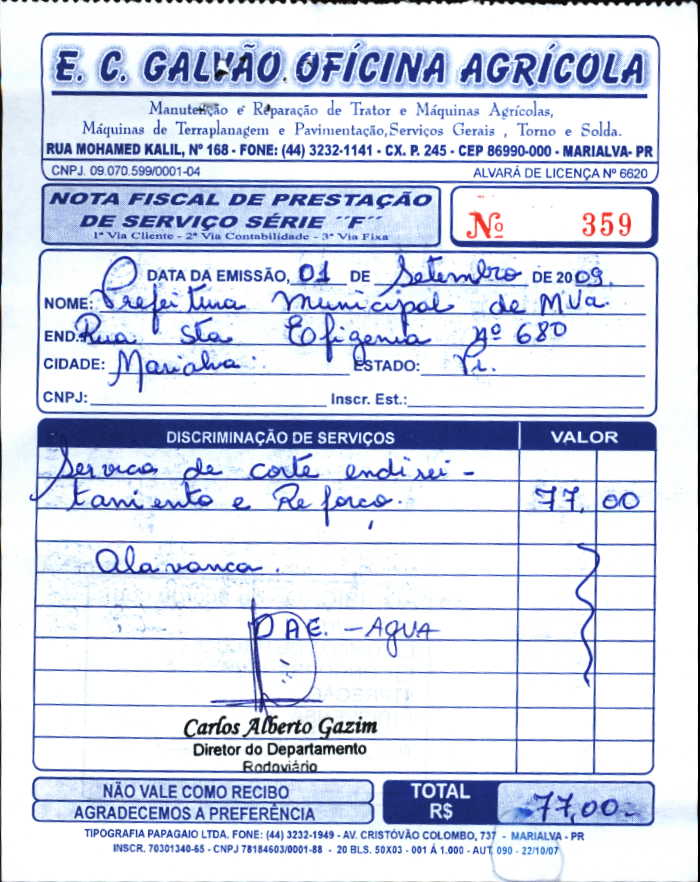 E. C. GALVÃO OFÍCINA AGRÍCOLA
Manutenção e Reparação de Trator e Máquinas Agrícolas,
Máquinas de Terraplanagem e Pavimentação,Serviços Gerais , Torno e Solda.
RUA MOHAMED KALIL, Nº 168 - FONE: (44) 3232-1141 - CX. P. 245 - CEP 86990-000 - MARIALVA- PR
CNPJ. 09.070.599/0001-04 ALVARÁ DE LICENÇA Nº 6620
NOTA FISCAL DE PRESTAÇÃO
DE SERVIÇO SÉRIE ´´F´´
1ª Via Cliente - 2ª Via Contabilidade - 3ª Via Fixa
Nº 359
DATA DA EMISSÃO, 01 DE Setembro DE 2009.
NOME: Prefeitura Municipal de MVa.
END. Rua Sta Efigenia Nº 680
CIDADE: Marialva ESTADO: Pr.
CNPJ: Inscr. Est.:
DISCRIMINAÇÃO DE SERVIÇOS VALOR
Servicos de corte endirei-
tamento e Reforço. 77,00
Alavanca.
DAE. - AGUA
Carlos Alberto Gazim
Diretor do Departamento
Rodoviário
NÃO VALE COMO RECIBO
AGRADECEMOS A PREFERÊNCIA
TOTAL
R$ 77,00
TIPOGRAFIA PAPAGAIO LTDA. FONE: (44) 3232-1949 - AV. CRISTÓVÃO COLOMBO, 737 - MARIALVA - PR
INSCR. 70301340-65 - CNPJ 78184603/0001-88 - 20 BLS. 50X03 - 001 Á 1.000 - AUT. 090 - 22/10/07